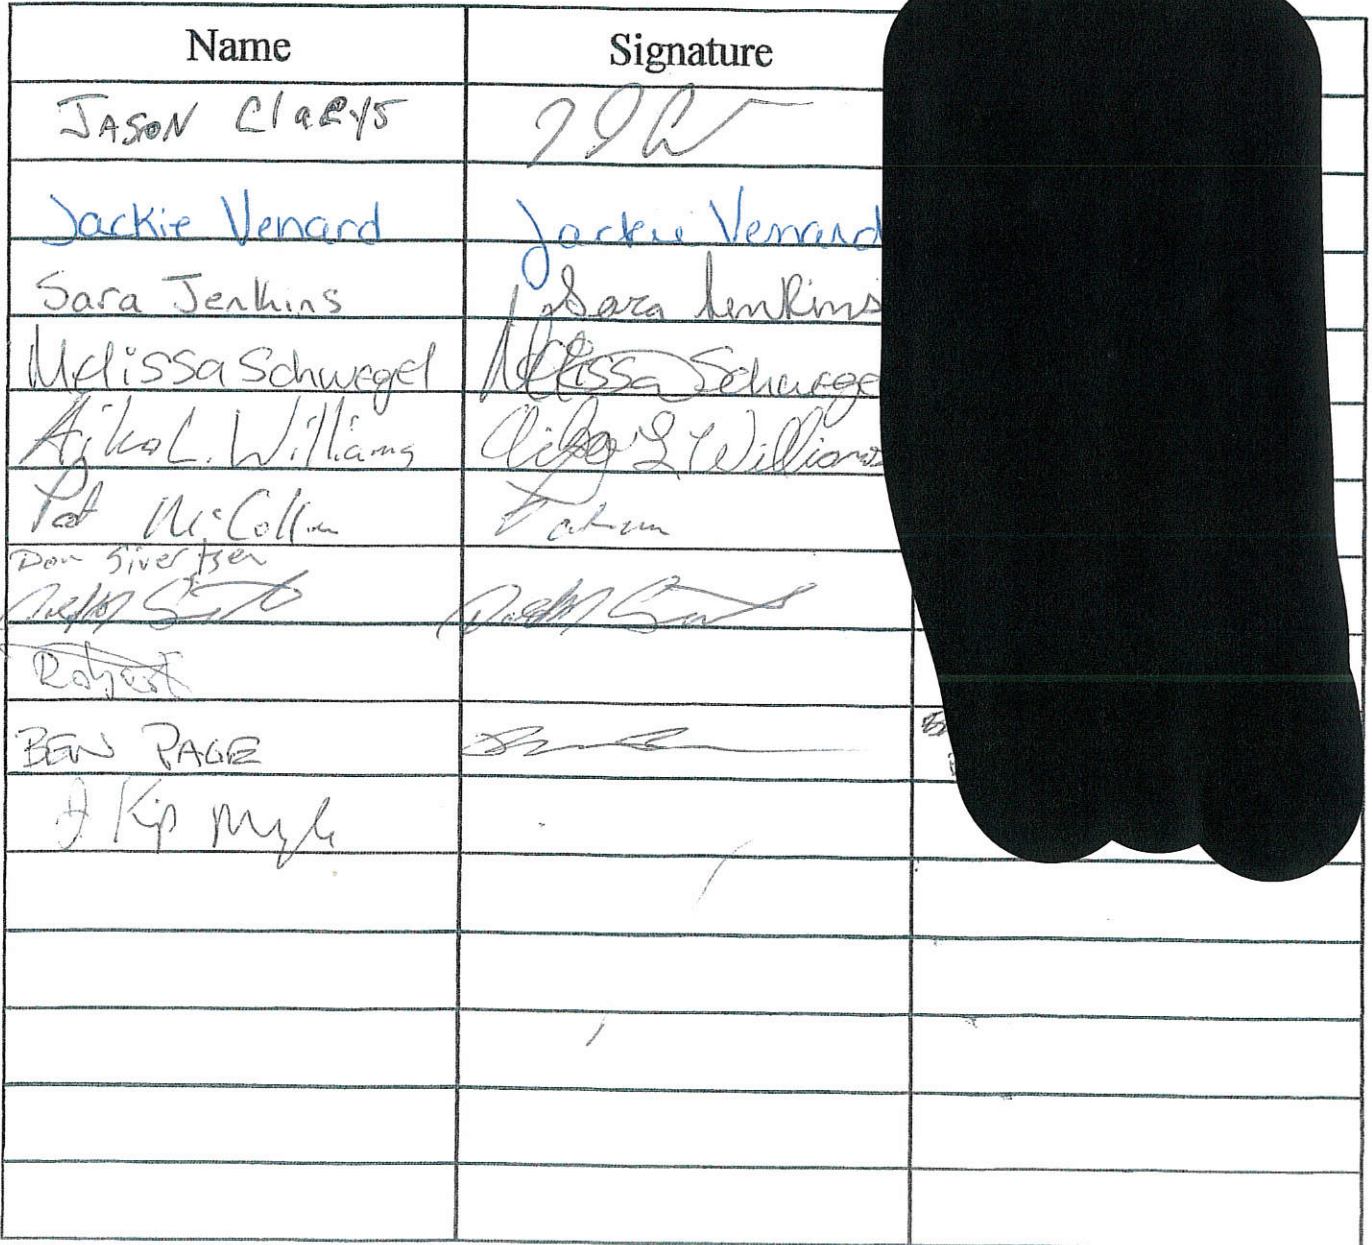 Name Signature
JASON Clarys
Jackie Venard Jackie Venard
Sara Jenkins Sara Jenkins
Melissa Schwegel Melissa Schwege
Aiko L. Williams Aiko L Williams
Pat McCollim
Don Sivertsen
Robert
BEN PAGE
Kip